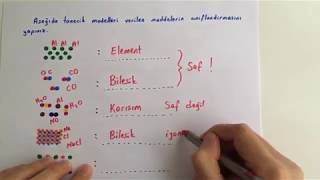 Aşağıda tanecik modelleri verilen maddelerin sınıflandırmasını yapınız.
Al Al Al
: Element
O C
CO
: Bileşik
} Saf !
CO
Al
: Karışım Saf değil
H₂O
Na
Cl
NaCl
: Bileşik iyon
: